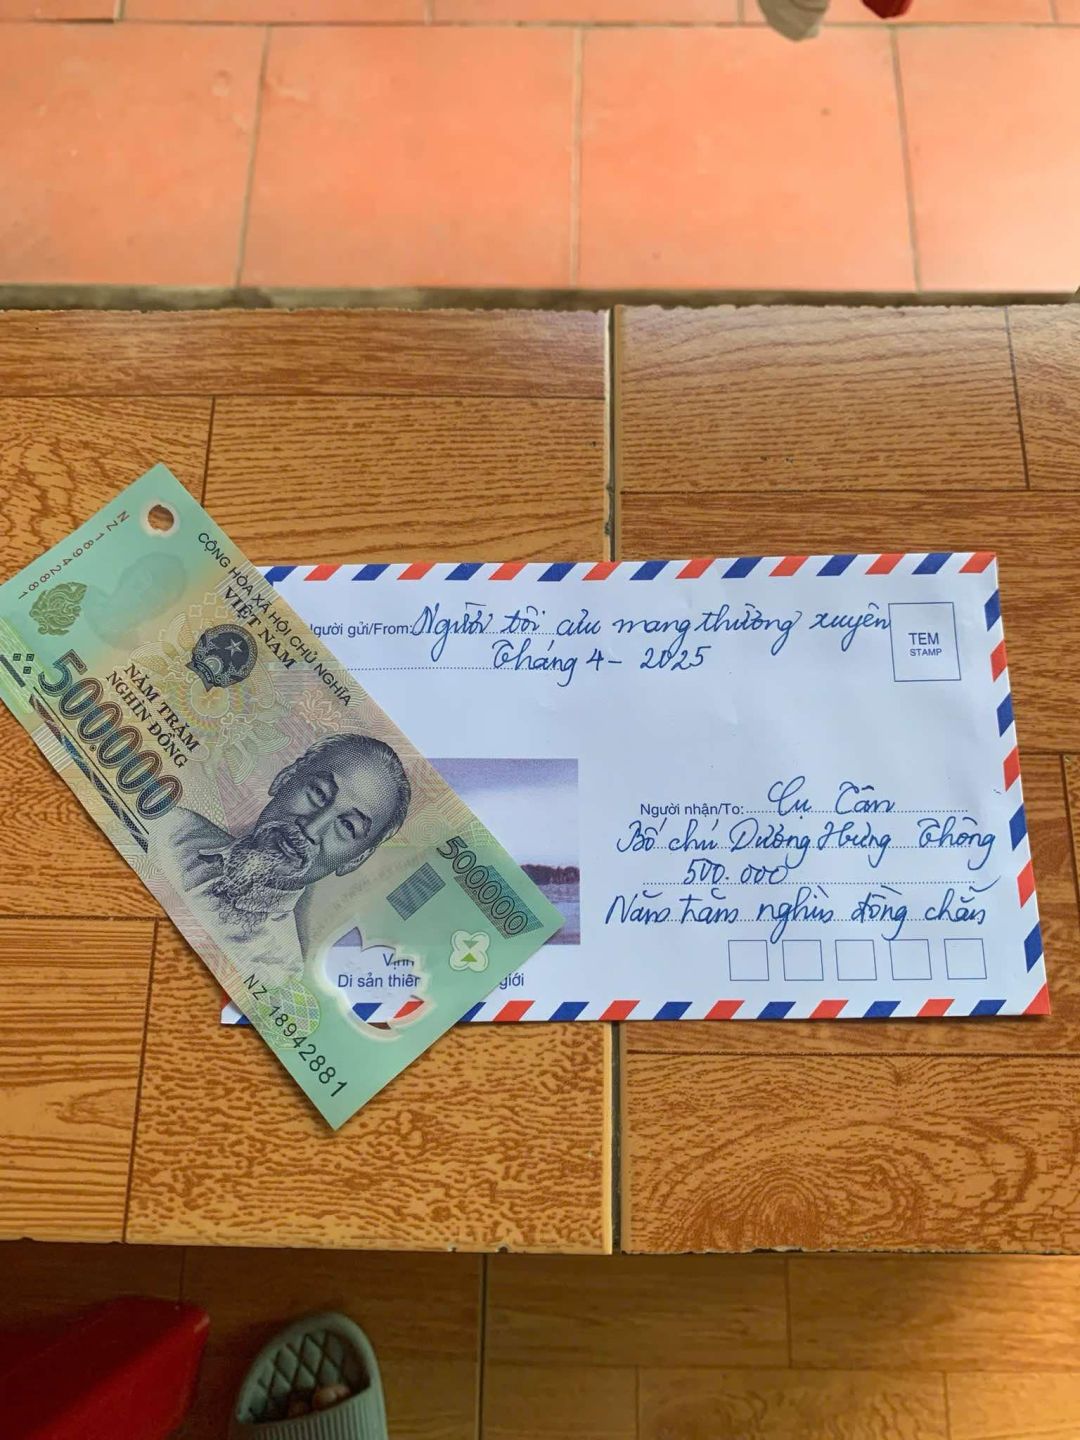 NZ18942881
CỘNG HÒA XÃ HỘI CHỦ NGHĨA
VIỆT NAM
NĂM TRĂM
NGHÌN ĐỒNG
500.000
500.000
NZ 18942881
Người gửi/From: Người tôi cưu mang thường xuyên
Tháng 4 - 2025
TEM
STAMP
Người nhận/To: Cụ Tân
Bố chú Dương Hưng Thông
500.000
Năm trăm nghìn đồng chẵn
Vịnh
Di sản thiên giới